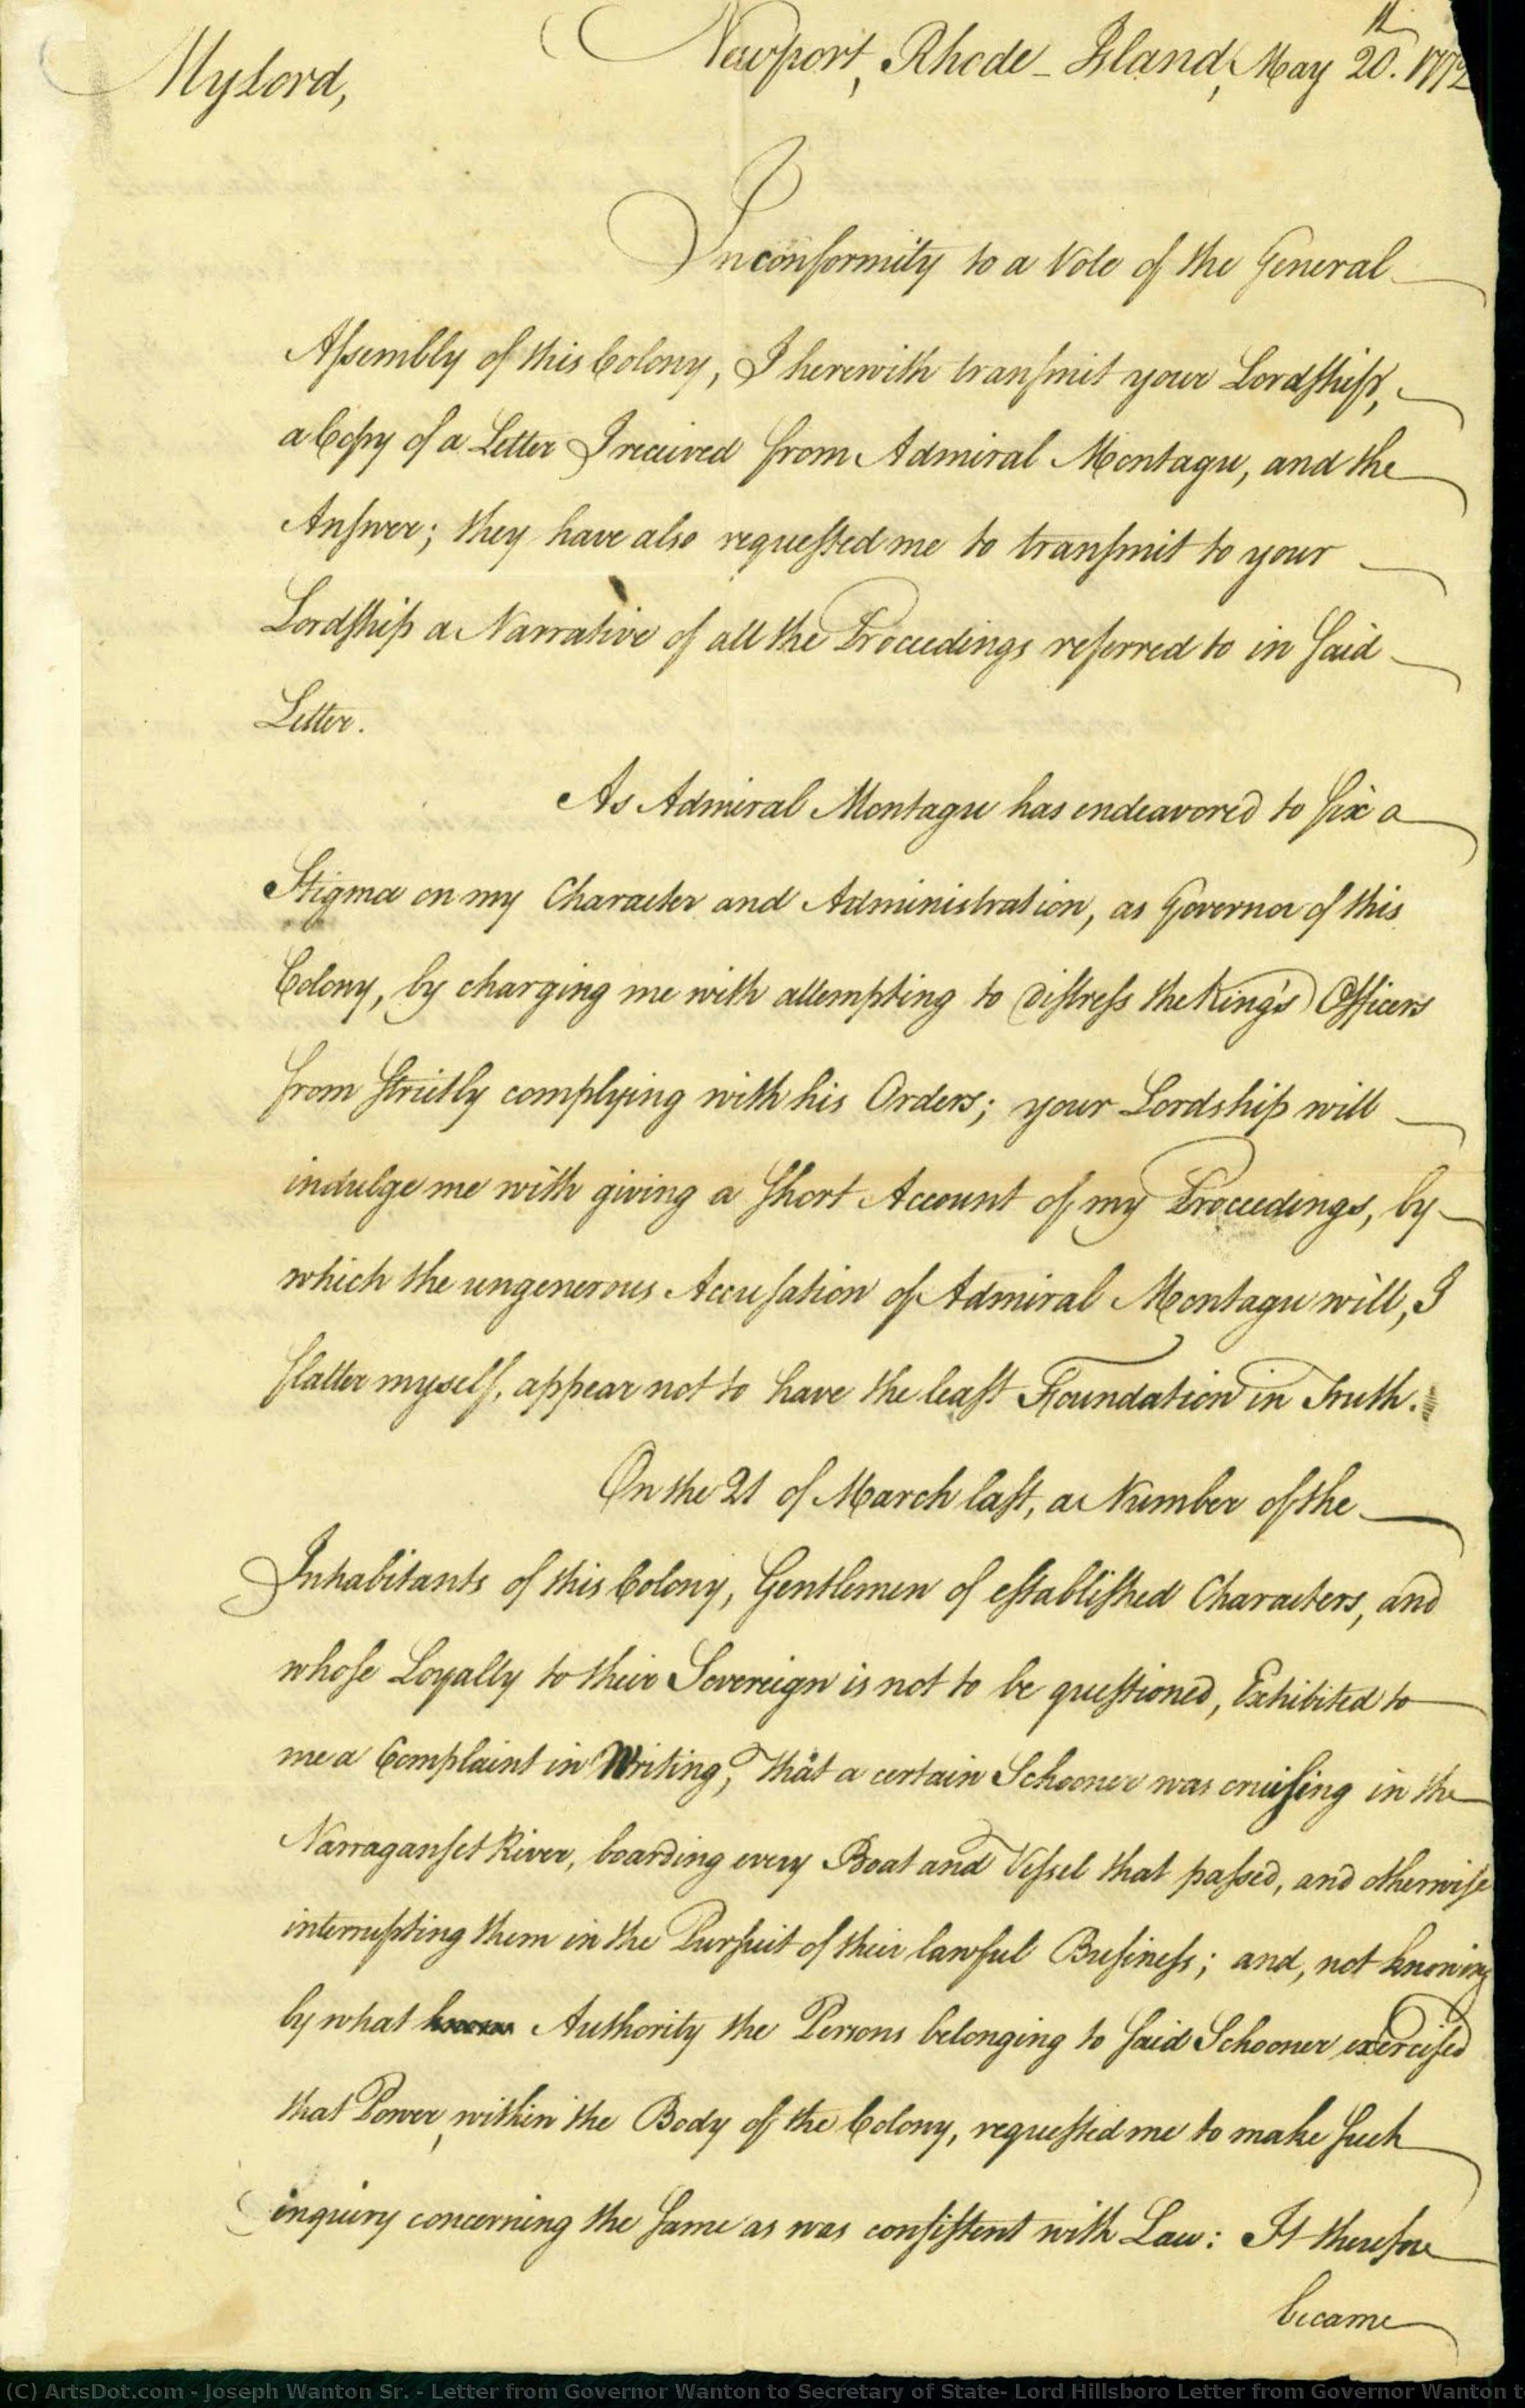 My Lord,
Newport, Rhode-Island, May 20.th 1772
In conformity to a Vote of the General
Aſsembly of this Colony, I herewith tranſmit your Lordſhip,
a Copy of a Letter I received from Admiral Montagu, and the
Anſwer; they have also requeſted me to tranſmit to your
Lordſhip a Narrative of all the Proceedings referred to in ſaid
Letter.
As Admiral Montagu has endeavored to fix a
Stigma on my Character and Administration, as Governor of this
Colony, by charging me with attempting to diſtreſs the King's Officers
from ſtrictly complying with his Orders; your Lordship will
indulge me with giving a ſhort Account of my Proceedings, by
which the ungenerous Accuſation of Admiral Montagu will, I
flatter myself, appear not to have the leaſt Foundation in Truth.
On the 21 of March laſt, a Number of the
Inhabitants of this Colony, Gentlemen of eſtabliſhed Characters, and
whoſe Loyalty to their Sovereign is not to be queſtioned, Exhibited to
me a Complaint in Writing, That a certain Schooner was cruiſing in the
Narraganſet River, boarding every Boat and Veſsel that paſsed, and otherwiſe
interrupting them in the Purſuit of their lawful Buſineſs; and, not knowing
by what Authority the Persons belonging to ſaid Schooner exerciſed
that Power, within the Body of the Colony, requeſted me to make ſuch
inquiry concerning the ſame as was conſiſtent with Law: It therefore
became
(C) ArtsDot.com - Joseph Wanton Sr. - Letter from Governor Wanton to Secretary of State- Lord Hillsboro Letter from Governor Wanton t